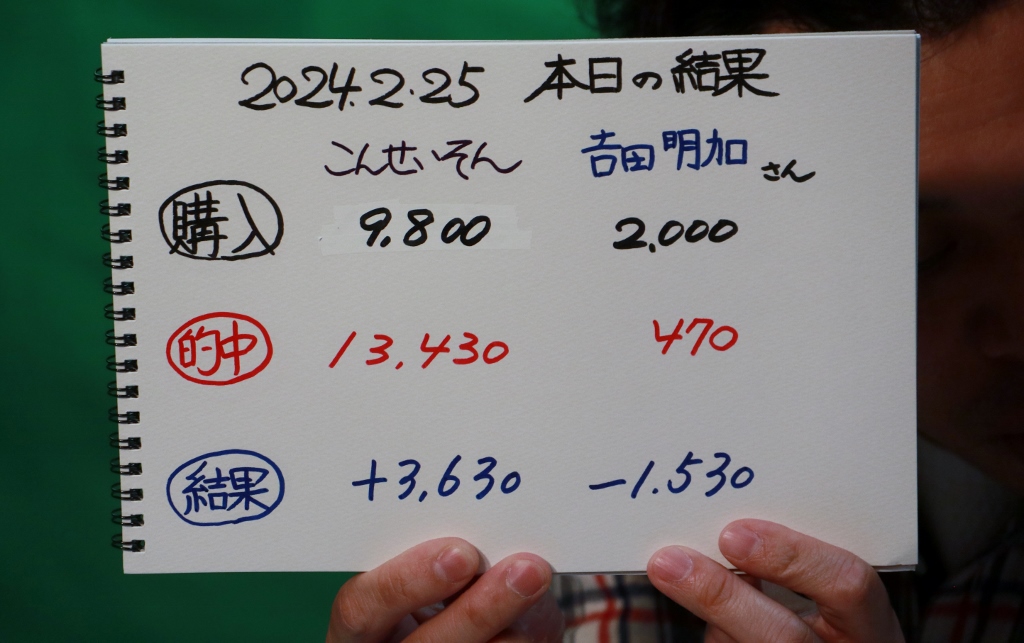 2024.2.25 本日の結果
こんせいそん 吉田明加さん
購入 9,800 2,000
的中 13,430 470
結果 +3,630 -1.530